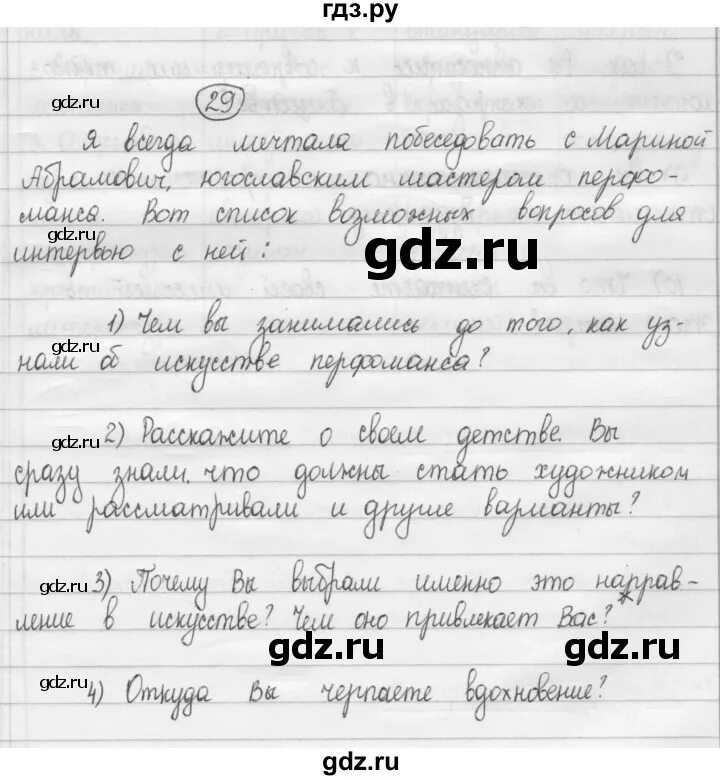 гдз.ру
29
Я всегда мечтала побеседовать с Мариной
Абрамович, югославским мастером перфо-
манса. Вот список возможных вопросов для
интервью с ней:
1) Чем вы занимались до того, как уз-
нали об искусстве перфоманса?
2) Расскажите о своем детстве. Вы
сразу знали, что должны стать художником
или рассматривали и другие варианты?
3) Почему Вы выбрали именно это направ-
ление в искусстве? Чем оно привлекает Вас?
4) Откуда Вы черпаете вдохновение?
gdz.ru
gdz.ru
gdz.ru
gdz.ru
gdz.ru
gdz.ru
gdz.ru
gdz.ru
gdz.ru
gdz.ru
gdz.ru